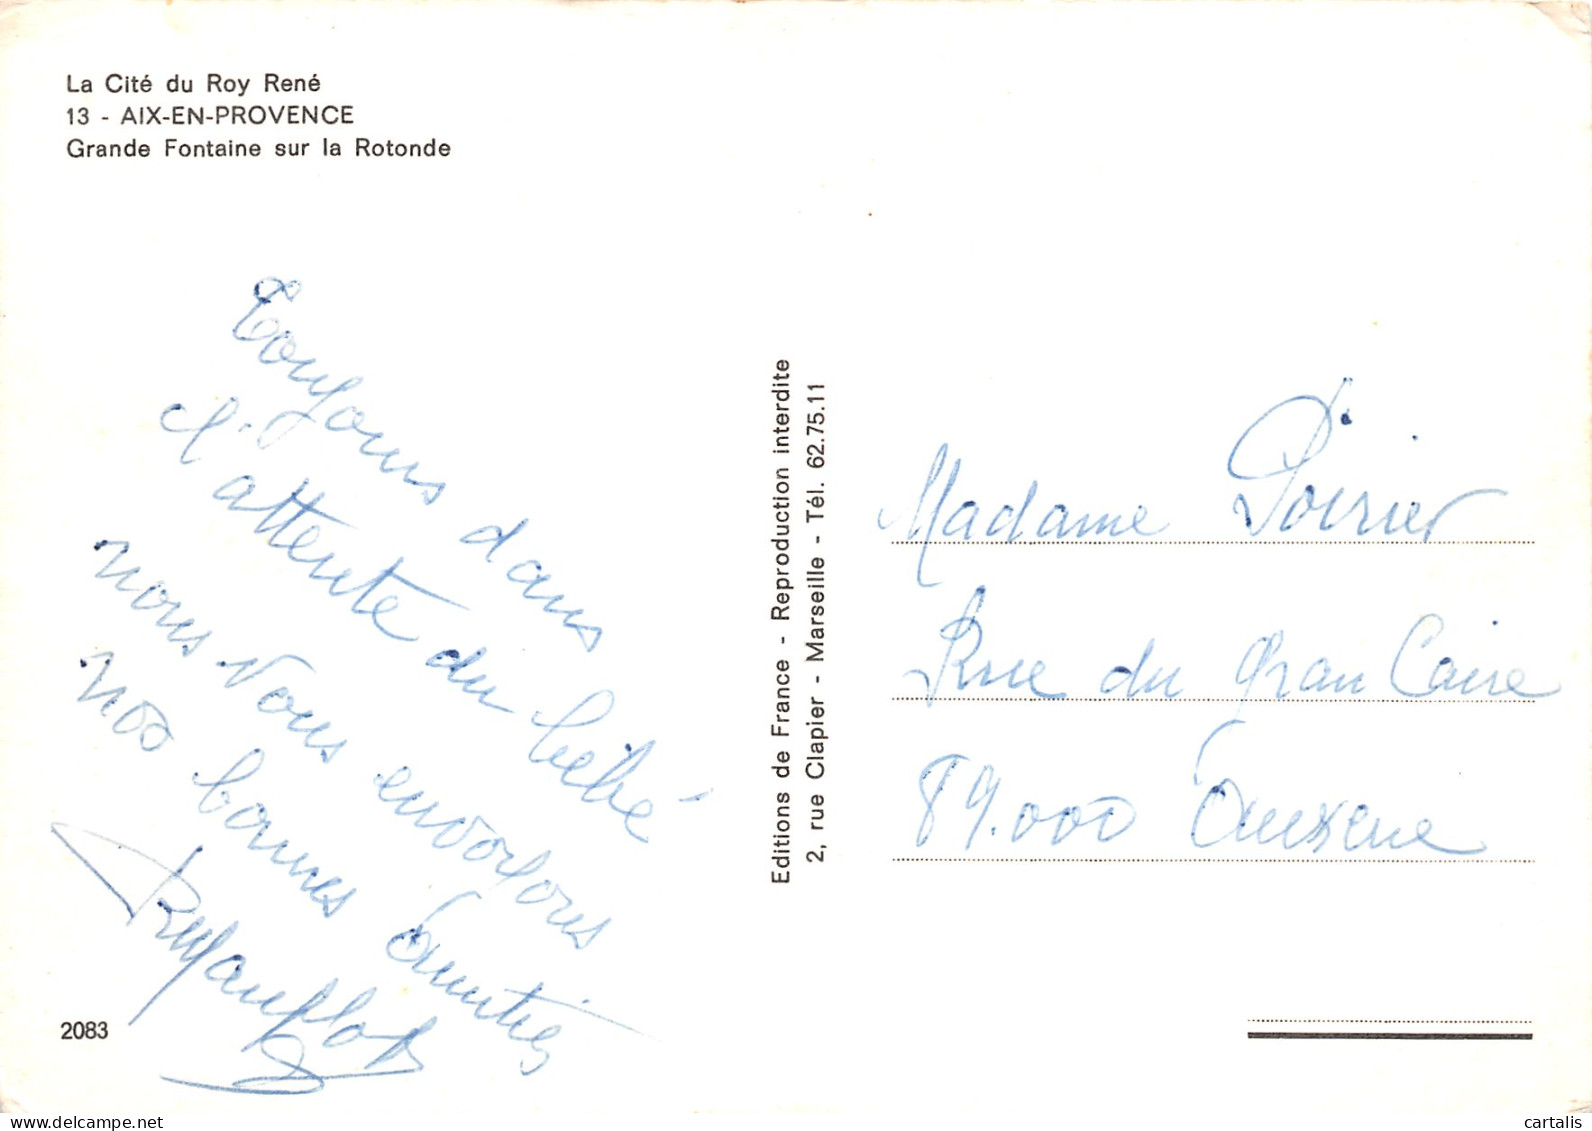 La Cité du Roy René
13 - AIX-EN-PROVENCE
Grande Fontaine sur la Rotonde
Toujours dans
l'attente du bébé
nous vous envoyons
nos bonnes amitiés
2083
Editions de France - Reproduction interdite
2, rue Clapier - Marseille - Tél. 62.75.11
Madame Poirier
Rue du gran Caire
89.000 Auxerre
cartalis